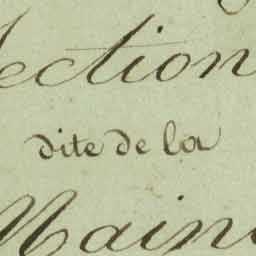 ection
dite de la
Main